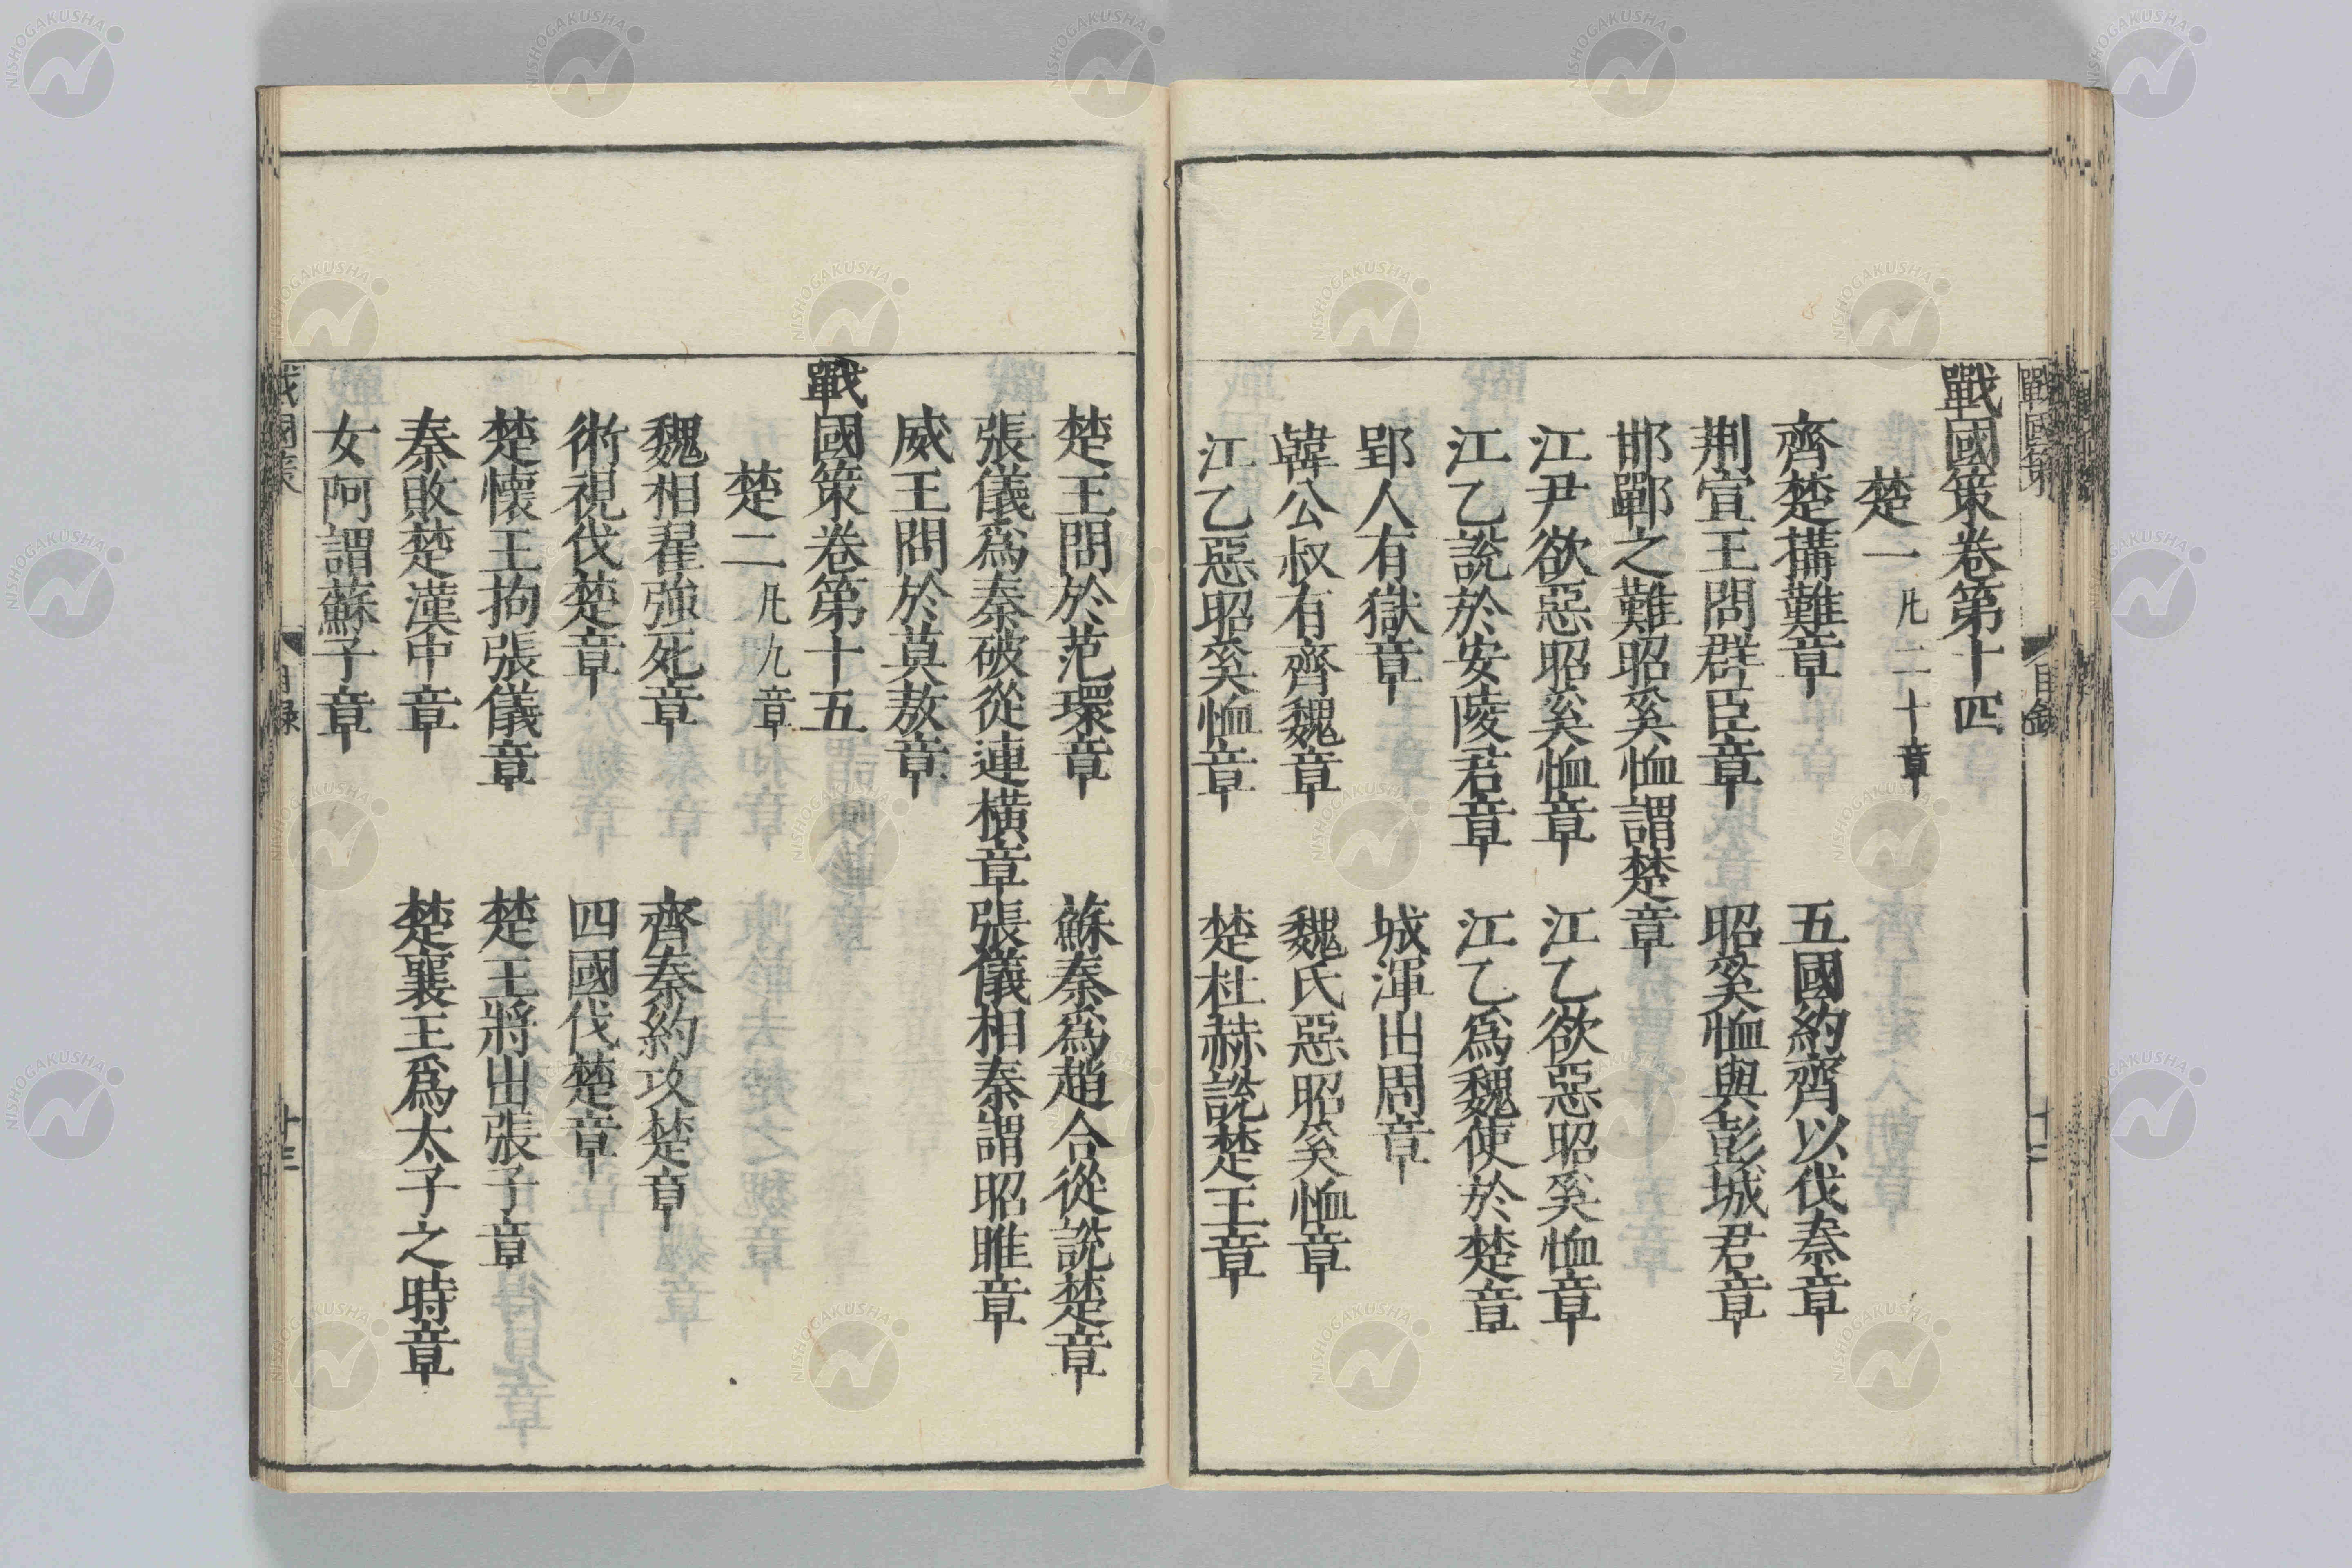 戰國策卷第十四
楚一 凡二十章
齊楚構難章 五國約齊以伐秦章
荆宣王問群臣章 昭奚恤與彭城君章
邯鄲之難昭奚恤謂楚章
江尹欲惡昭奚恤章 江乙欲惡昭奚恤章
江乙說於安陵君章 江乙爲魏使於楚章
郢人有獄章 城渾出周章
韓公叔有齊魏章 魏氏惡昭奚恤章
江乙惡昭奚恤章 楚杜赫說楚王章
楚王問於范環章 蘇秦爲趙合從說楚章
張儀爲秦破從連橫章 張儀相秦謂昭睢章
威王問於莫敖章
戰國策卷第十五
楚二 凡九章
魏相翟強死章 齊秦約攻楚章
術視伐楚章 四國伐楚章
楚懷王拘張儀章 楚王將出張子章
秦敗楚漢中章 楚襄王爲太子之時章
女阿謂蘇子章
戰國策 目錄
戰國策 目録 十三
NISHOGAKUSHA